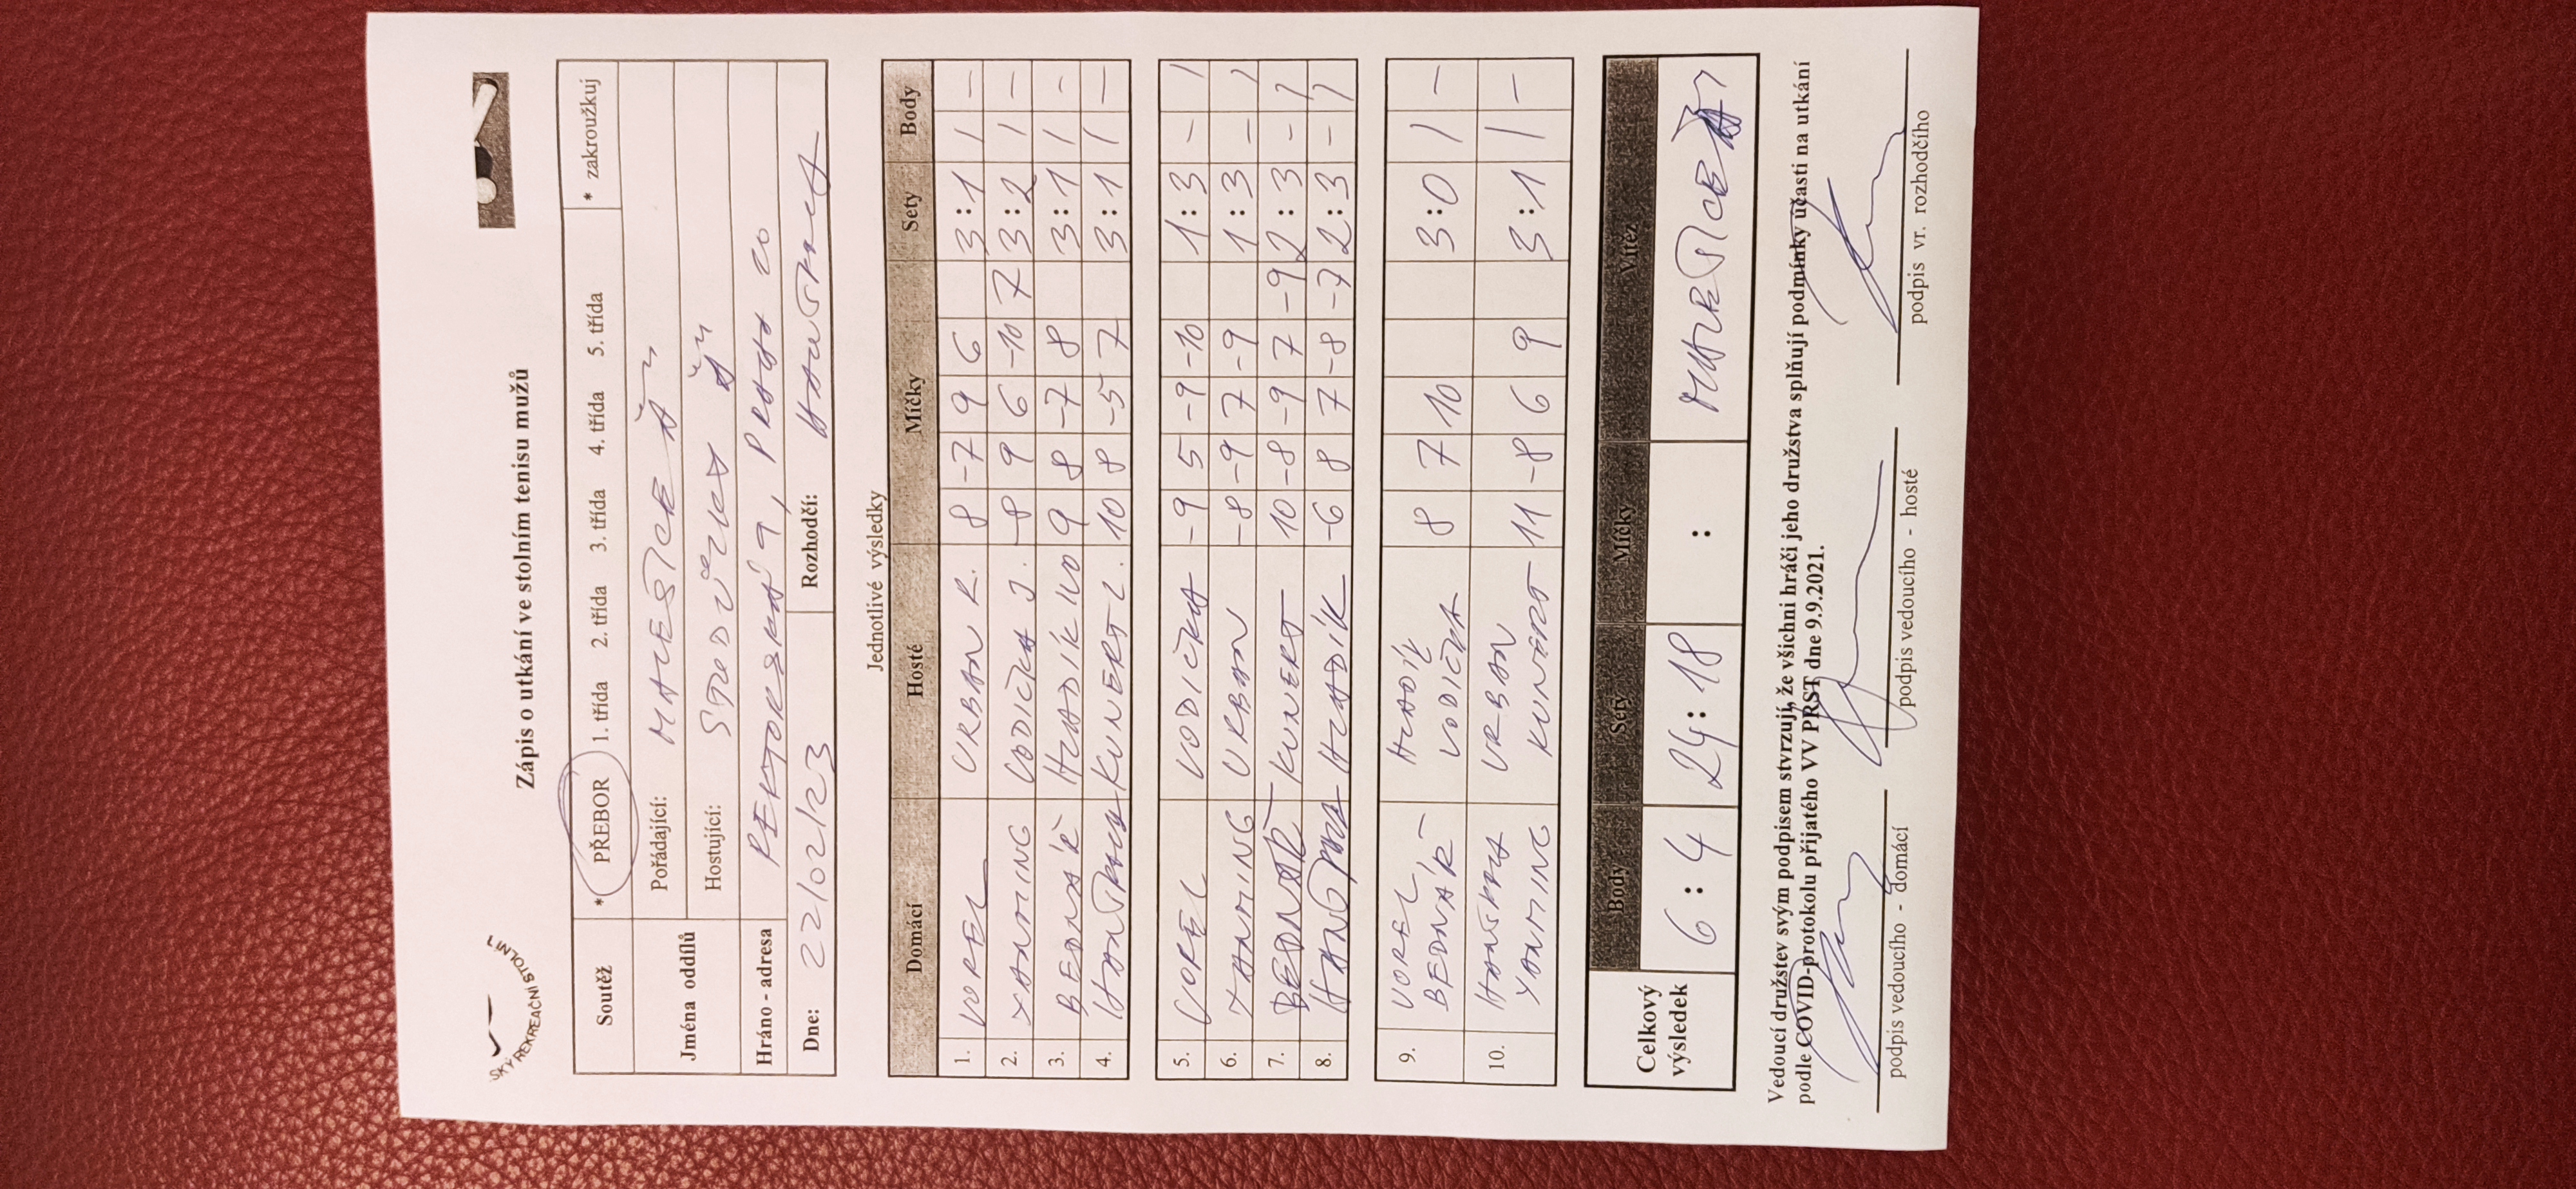 SKÝ REKREAČNÍ STOLNÍ
Zápis o utkání ve stolním tenisu mužů
Soutěž * PŘEBOR 1. třída 2. třída 3. třída 4. třída 5. třída * zakroužkuj
Jména oddílů Pořádající: MALEŠICE A
Hostující: STODŮLKY A
Hráno - adresa REKTORSKÁ 9, PRAHA 10
Dne: 22/02/23 Rozhodčí:
Jednotlivé výsledky
Domácí Hosté Míčky Sety Body
1. VOREL URBAN R. 8 -7 9 6 3:1 1 -
2. YANMING VODIČKA J. -8 9 6 -10 7 3:2 1 -
3. BEDNÁŘ HLADÍK 9 8 -7 8 3:1 1 -
4. KUNERT L. 10 8 -5 7 3:1 1 -
5. VOREL VODIČKA -9 5 -9 -10 1:3 - 1
6. YANMING URBAN -8 -9 7 -9 1:3 - 1
7. BEDNÁŘ KUNERT 10 -8 -9 7 -9 2:3 - 1
8. HLADÍK -6 8 7 -8 -7 2:3 - 1
9. VOREL HLADÍK 8 7 10 3:0 1 -
BEDNÁŘ VODIČKA
10. URBAN 11 -8 6 9 3:1 1 -
YANMING KUNERT
Celkový výsledek Body Sety Míčky Vítěz
6:4 24:18 : MALEŠICE A
Vedoucí družstev svým podpisem stvrzují, že všichni hráči jeho družstva splňují podmínky účasti na utkání
podle COVID-protokolu přijatého VV PRST dne 9.9.2021.
podpis vedoucího - domácí podpis vedoucího - hosté podpis vr. rozhodčího